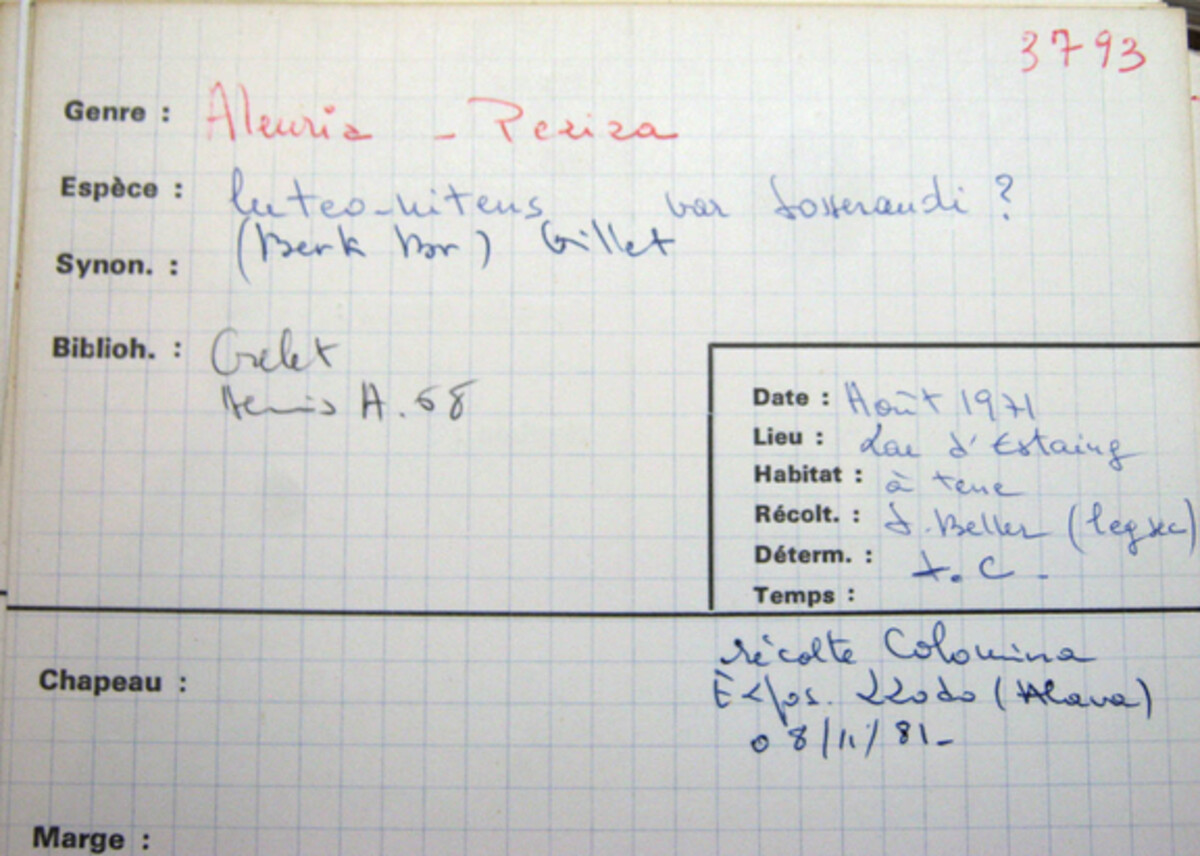 3793
Genre : Aleuria - Peziza
Espèce : luteo-nitens var Josserandi ?
(Berk Br) Gillet
Synon. :
Biblioh. : Grelet
Dennis A. 68
Date : Août 1971
Lieu : Lac d'Estaing
Habitat : à terre
Récolt. : J. Beller (leg sec)
Déterm. : J. C.
Temps :
récolte Colomina
Chapeau :
Expos. (Alava)
08/11/81-
Marge :